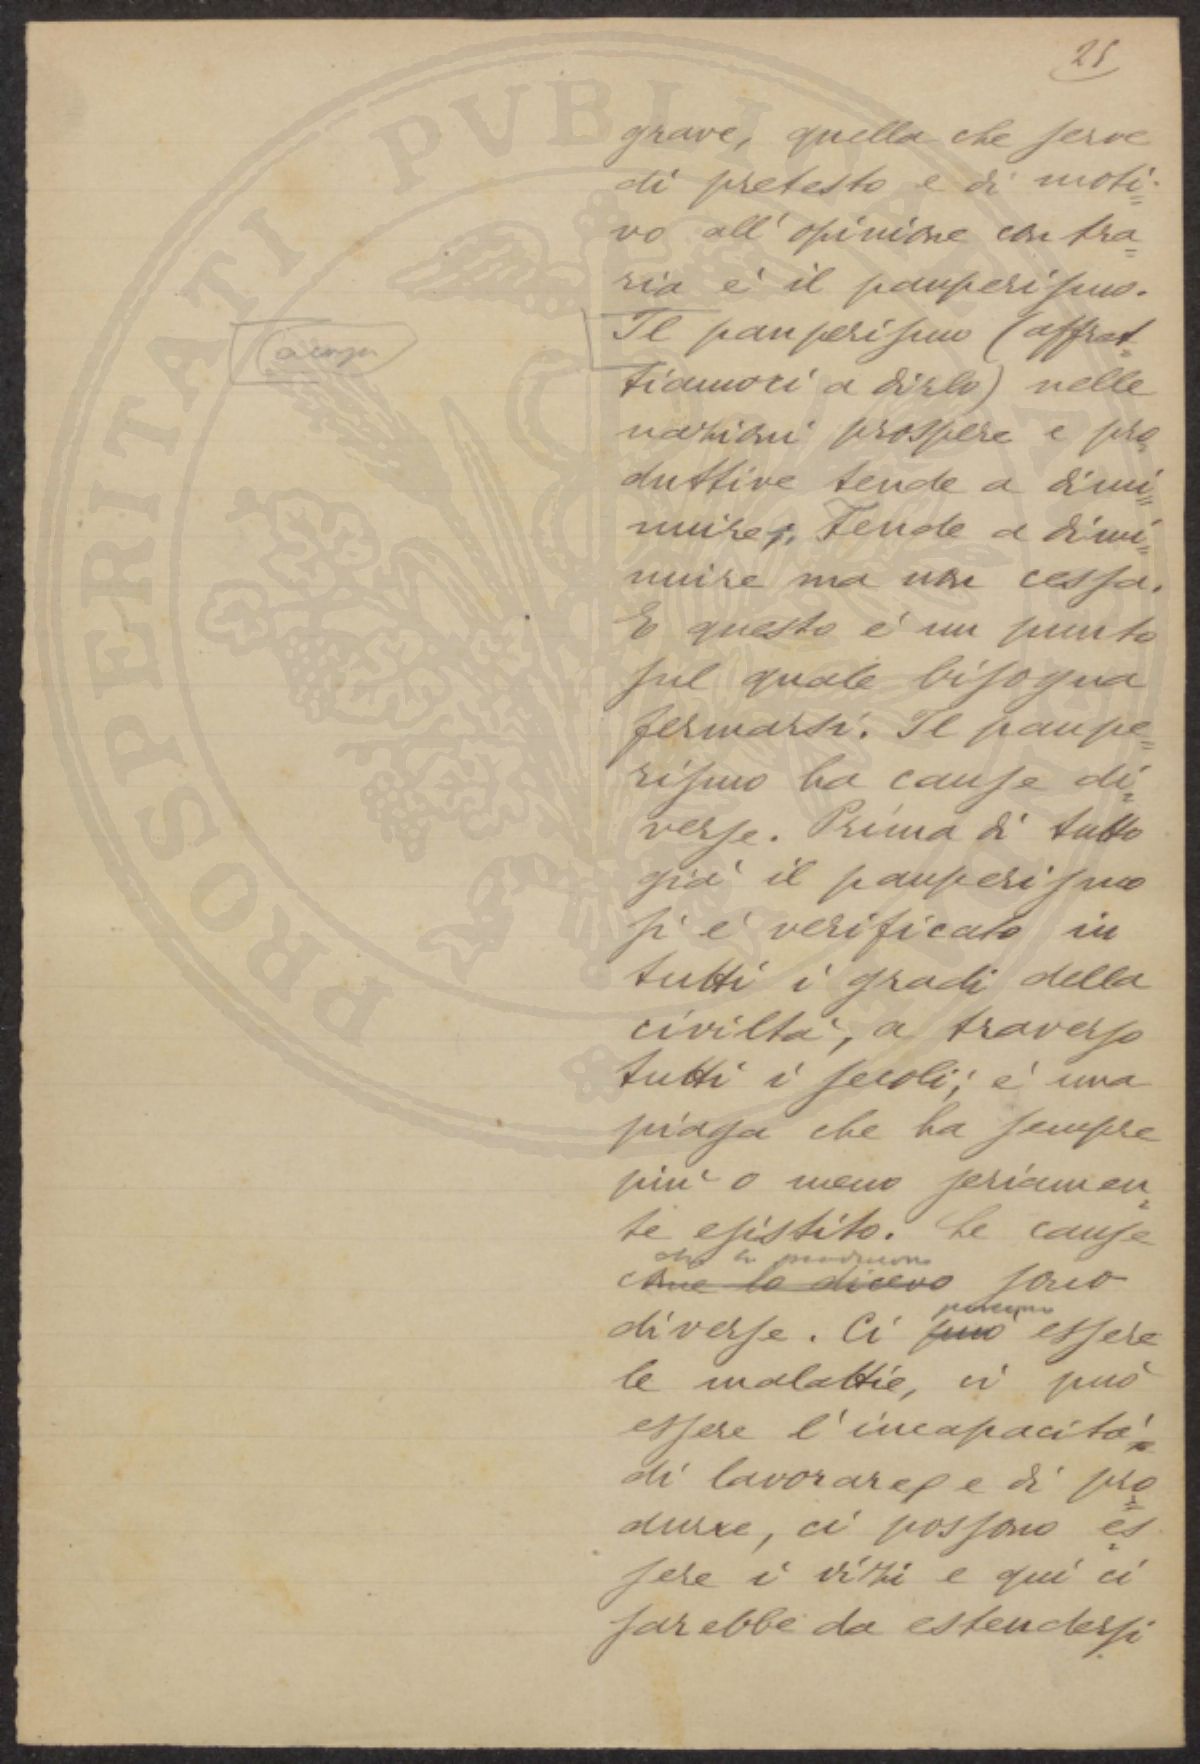 25
grave, quella che serve
di pretesto e di moti=
vo all'opinione contra=
ria è il pauperismo.
Il pauperismo (affret=
tiamoci a dirlo) nelle
a capo
nazioni prospere e pro=
duttive tende a dimi=
nuire. Tende a dimi=
nuire ma non cessa.
E questo è un punto
sul quale bisogna
fermarsi. Il paupe=
rismo ha cause di=
verse. Prima di tutto
già il pauperismo
si è verificato in
tutti i gradi della
civiltà, a traverso
tutti i secoli; è una
piaga che ha sempre
più o meno seriamen=
te esistito. Le cause
che lo producono
come lo dicevo sono
possono
diverse. Ci può essere
le malattie, ci può
essere l'incapacità
di lavorare e di pro=
durre, ci possono es=
sere i vizi e qui ci
sarebbe da estendersi
PROSPERITATI PVBLICAE